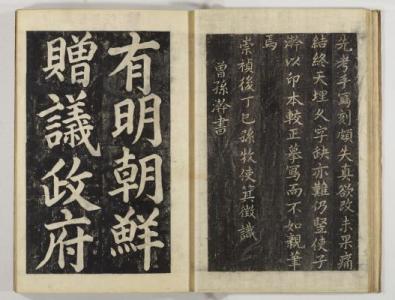 先考手寫刻頗失真欲改未果痛
結終天埋久字缺亦難仍竪使子
澣以印本較正摹寫而不如親筆
焉
崇禎後丁巳孫牧使箕徵識
曾孫澣書
有明朝鮮
贈議政府